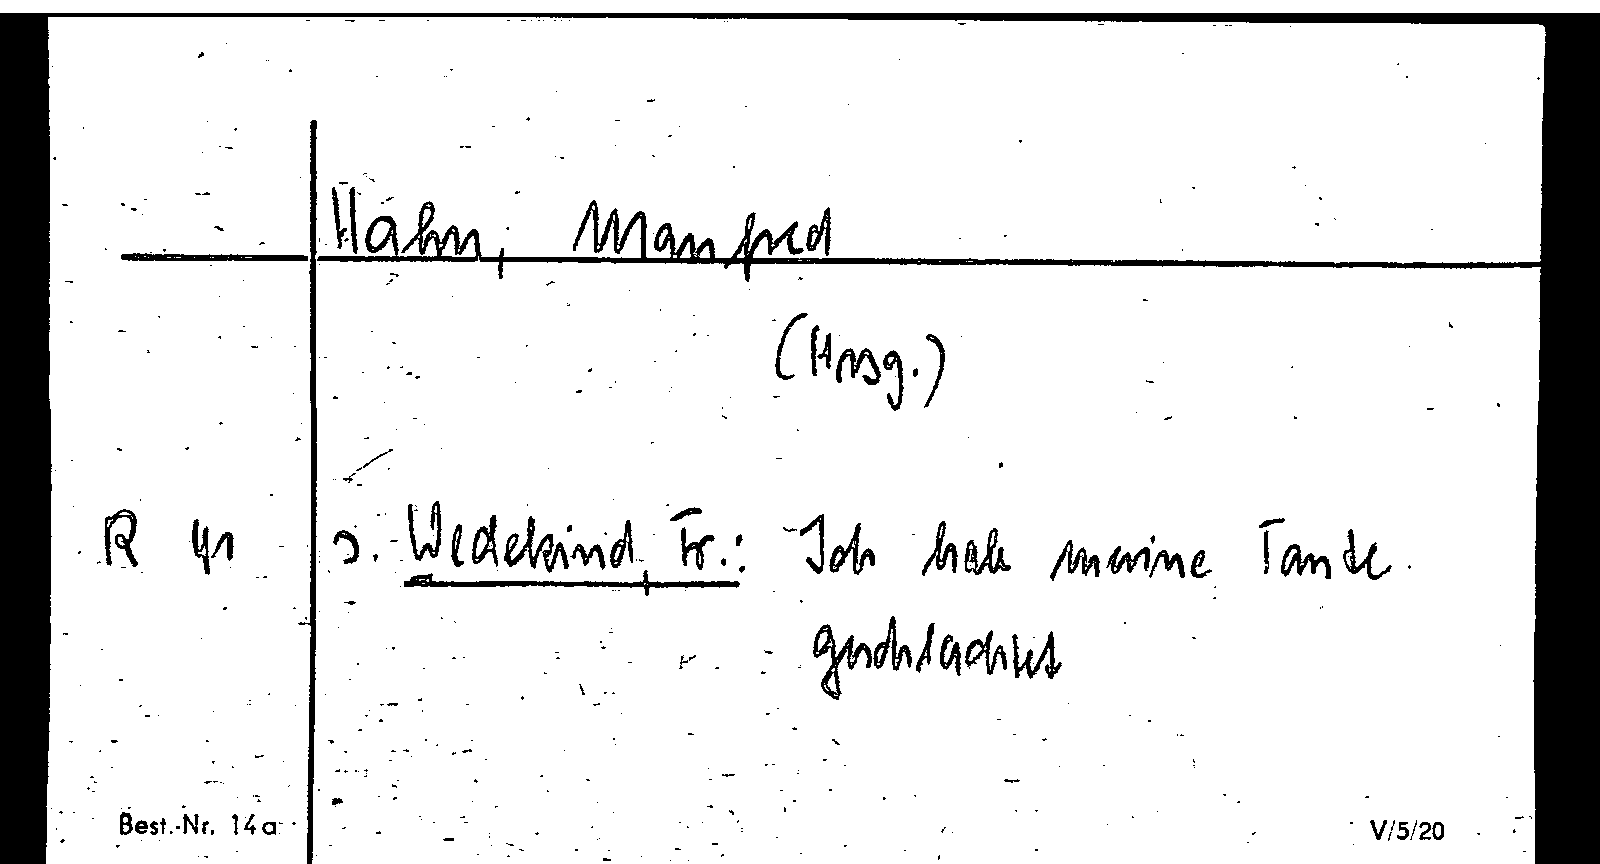 Hahn, Manfred
(Hrsg.)
R 41 s. Wedekind, Fr.: Ich hab meine Tante
geschlachtet
Best.-Nr. 14a V/5/20